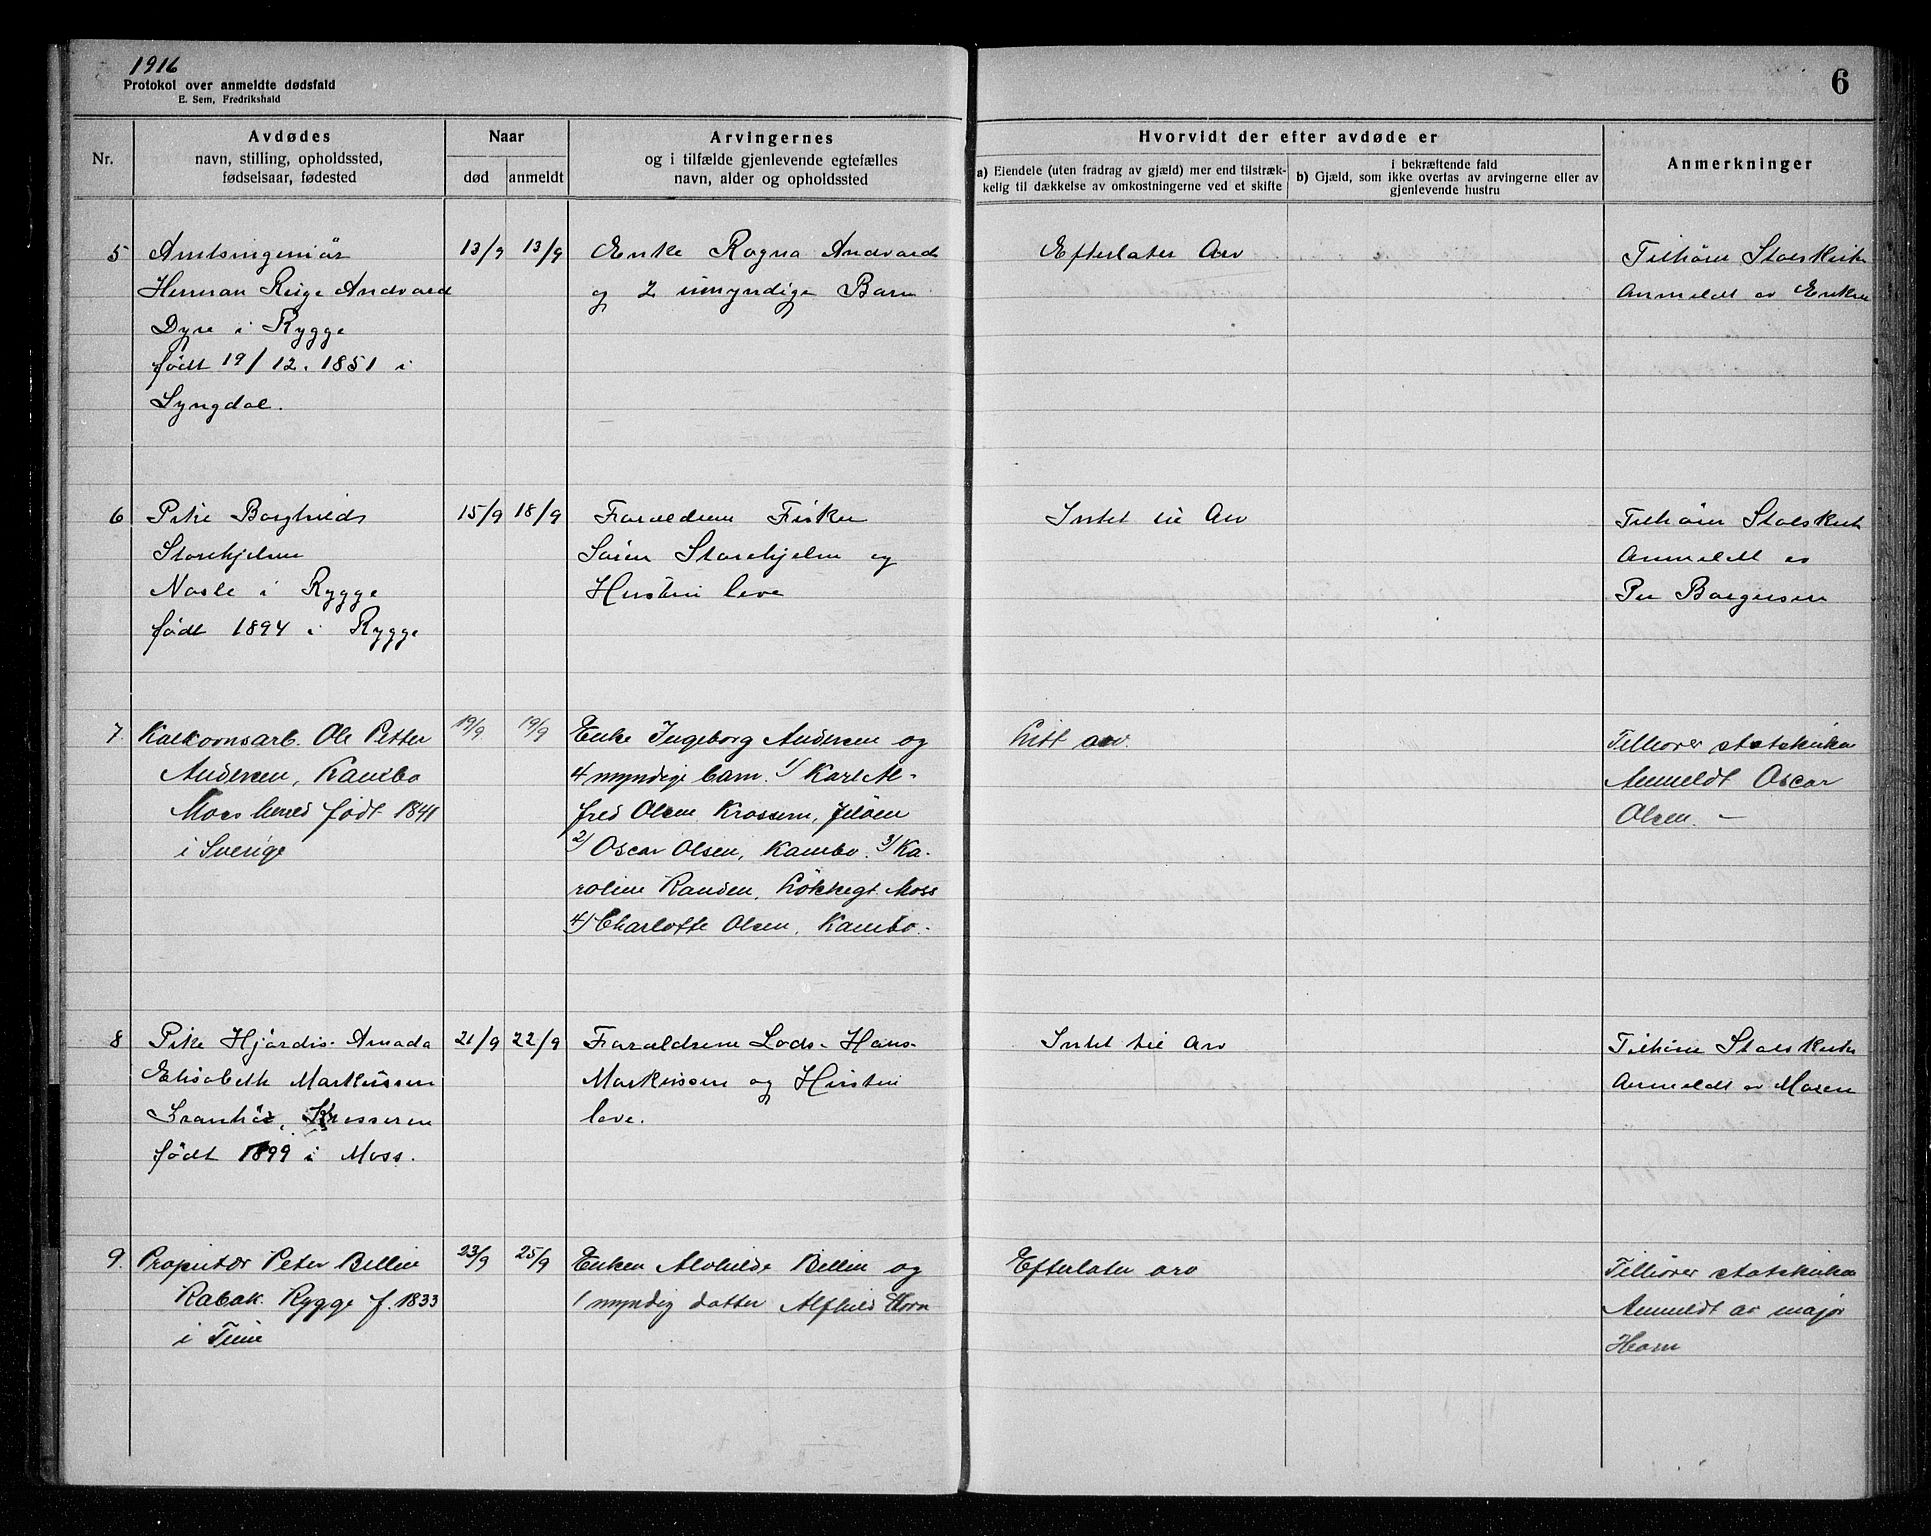 1916
Protokol over anmeldte dødsfald
E. Sem, Fredrikshald
6
Nr.
Avdødes
navn, stilling, opholdssted,
fødselsaar, fødested
Naar
død
anmeldt
Arvingernes
og i tilfælde gjenlevende egtefælles
navn, alder og opholdssted
Hvorvidt der efter avdøde er
a) Eiendele (uten fradrag av gjæld) mer end tilstræk-
kelig til dækkelse av omkostningerne ved et skifte
i bekræftende fald
b) Gjæld, som ikke overtas av arvingerne eller av
gjenlevende hustru
Anmerkninger
5
Amtsingeniør
Herman Andvord
Dyre i Rygge
født 19/12. 1851 i
Lyngdal.
13/9
13/9
Enke Ragna Andvord
og 2 umyndige Barn
Efterlater Arv
Tilhører Statskirken
Anmeldt av Enken
6
Pike Borghild
Storehjelm
i Rygge
født 1894 i Rygge
15/9
18/9
Foræld­rene Fisker
Søren Storehjelm og
Hustru leve
Intet til Arv
Tilhører Statskirk
Anmeldt av
Per Borgersen
7.
Kalkovnsarb. Ole Petter
Andersen, Kambo
Moss herred født 1841
i Sverige
19/9
19/9
Enke Ingeborg Andersen og
4 myndige barn. 1/ Karl Al-
fred Olsen Krossern, Jeløen
2/ Oscar Olsen, Kambo. 3/ Ka-
roline Randen, Løkkegt. Moss
4/ Charlotte Olsen, Kambo.
Litt arv.
Tilhører statskirken
Anmeldt Oscar
Olsen. –
8
Pike Hjørdis Amada
Elisabeth Markussen
Krosseren
født 1899 i Moss.
21/9
22/9
Forældrene Lods Hans
Markussen og Hustru
leve.
Intet til Arv
Tilhører Statskirken
Anmeldt av Moren
9.
Propritær Peter Billie
Rabæk. Rygge f. 1833
i
23/9
25/9
Enken Alvhilde Billie og
1 myndig datter Alfhild Horn
Efterlater arv
Tilhører statskirken
Anmeldt av major
Horn